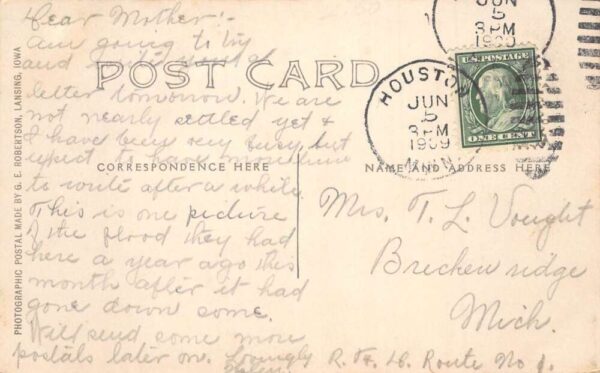 Dear Mother:-
Am going to try
and
letter tomorrow. We are
not nearly settled yet &
I have been very busy but
expect to have more time
to write after a while.
This is one picture
of the flood they had
here a year ago this
month after it had
gone down some.
Will send some more
postals later on. Lovingly
POST CARD
CORRESPONDENCE HERE
NAME AND ADDRESS HERE
PHOTOGRAPHIC POSTAL MADE BY G. E. ROBERTSON, LANSING, IOWA
JUN
5
3 PM
1909
HOUSTON
JUN
5
3 PM
1909
MINN.
U.S. POSTAGE
ONE CENT
Mrs. T. L. Vought
Breckenridge
Mich.
Route No 1.